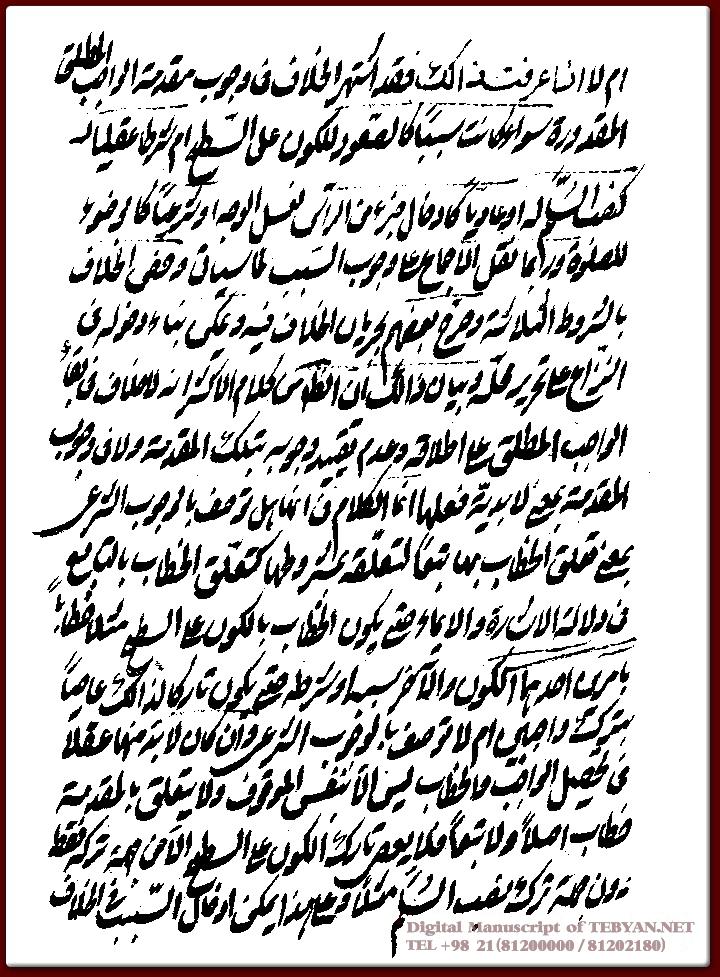 ام لا اذا عرفت ذالك فقد اشتهر الخلاف فى وجوب مقدمة الواجب المطلق
المقدورة سواء كانت سببًا كالصعود للكون على السّطح ام شرطا عقليا له
كنصب السّلّم له او عاديا كادخال جزء من الرأس لغسل الوجه او شرعيًا كالوضوء
للصلوة وربما نقل الاجماع على وجوب السبب وخص الخلاف
بالشروط الثلاثة وصرّح بعضهم بجريان الخلاف فيه ويمكن بناء دخوله فى
النّزاع على تحرير محلّه وبيان ذالك ان الظّ من كلام الاكثر انه لاخلاف فى بقاء
الواجب المطلق على اطلاقه وعدم تقييد وجوبه بتلك المقدمة ولا فى وجوب
المقدمة بمعنى لابديّة فعلها انّما الكلام فى انها هل توصف بالوجوب الشرعى
بمعنى تعلق الخطاب بها تبعًا لتعلّقه بمشروطها كتعلّق الخطاب بالتابع
فى دلالة الاشارة والايماء حتى يكون الخطاب بالكون على السطح مثلا خطابًا
بامرين احدهما الكون والآخر سببه او شرطه حتى يكون تاركا لذالك عاصيًا
بترك واجبين ام لا توصف بالوجوب الشرعى وان كان لابد منها عقلا
فى تحصيل الواجب فالخطاب ليس الّا بنفس الموقوف ولا يتعلق بالمقدمة
خطاب اصلاً ولا تبعاً فلا يعصى تارك الكون على السطح الا من جهة تركه فقط
دون جهة ترك نصب السلّم مثلاً وعلى هذا يمكن ادخال السّبب فى الخلاف
Digital Manuscript of TEBYAN.NET
TEL +98 21(81200000 / 81202180)